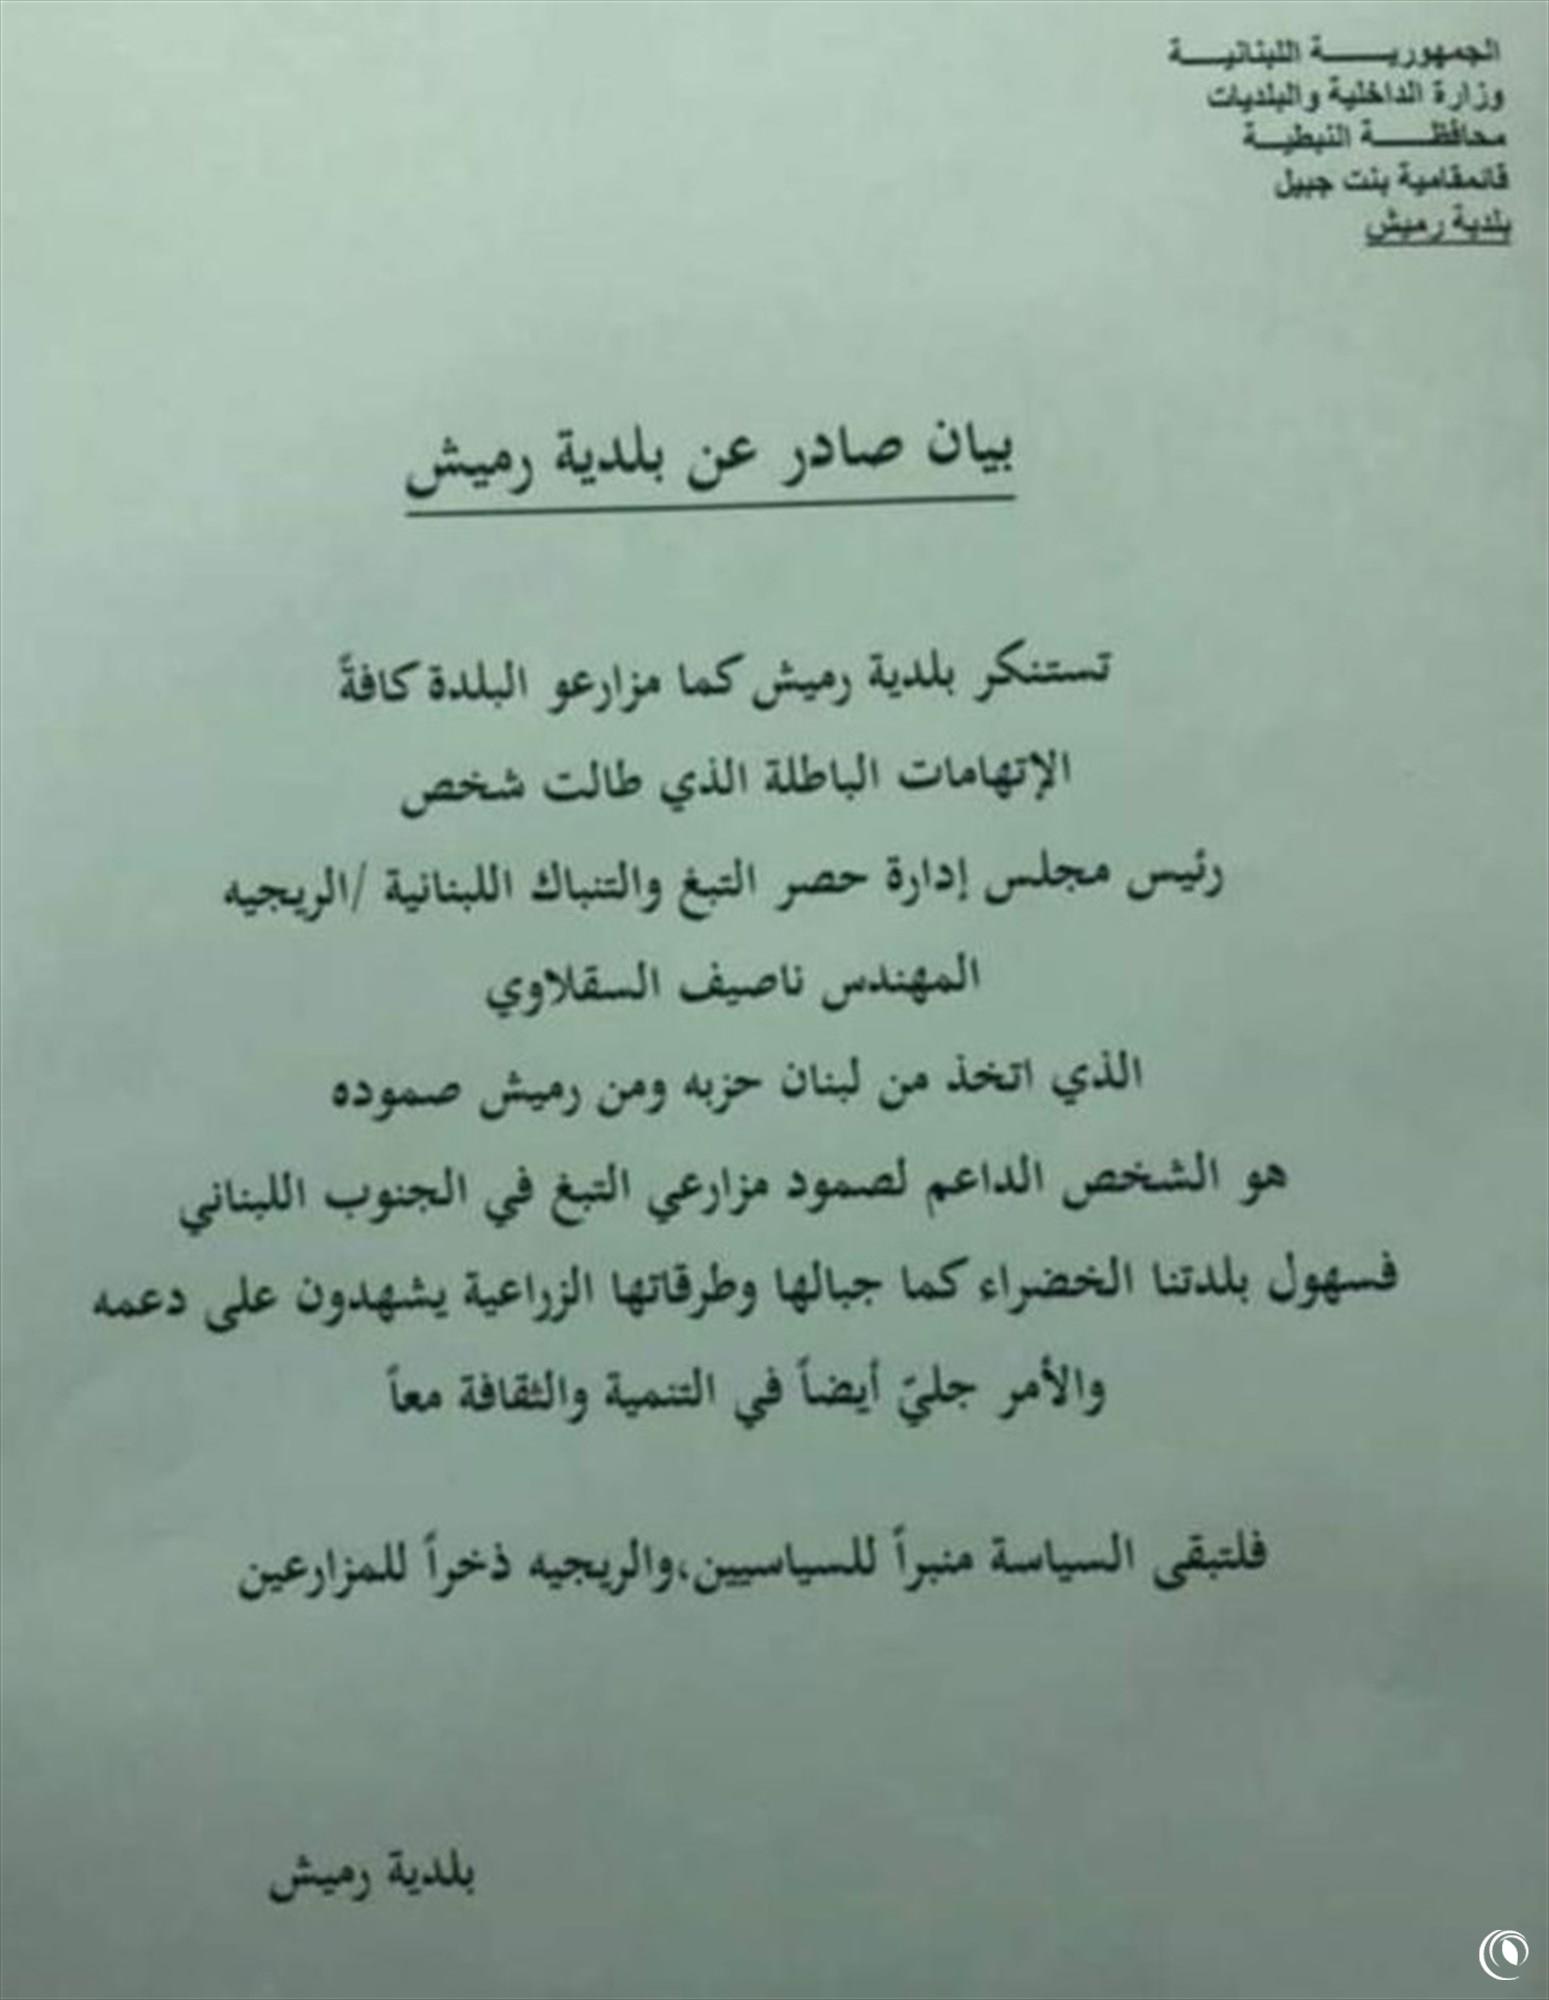 الجمهوريـــــة اللبنانيـــة
وزارة الداخلية والبلديات
محافظـــــة النبطيـــة
قائمقامية بنت جبيل
بلدية رميش
بيان صادر عن بلدية رميش
تستنكر بلدية رميش كما مزارعو البلدة كافةً
الإتهامات الباطلة الذي طالت شخص
رئيس مجلس إدارة حصر التبغ والتنباك اللبنانية /الريجيه
المهندس ناصيف السقلاوي
الذي اتخذ من لبنان حزبه ومن رميش صموده
هو الشخص الداعم لصمود مزارعي التبغ في الجنوب اللبناني
فسهول بلدتنا الخضراء كما جبالها وطرقاتها الزراعية يشهدون على دعمه
والأمر جليّ أيضاً في التنمية والثقافة معاً
فلتبقى السياسة منبراً للسياسيين،والريجيه ذخراً للمزارعين
بلدية رميش